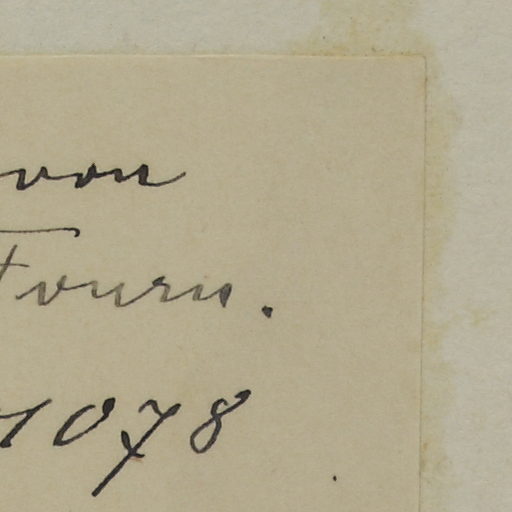 von
Fourn.
1078